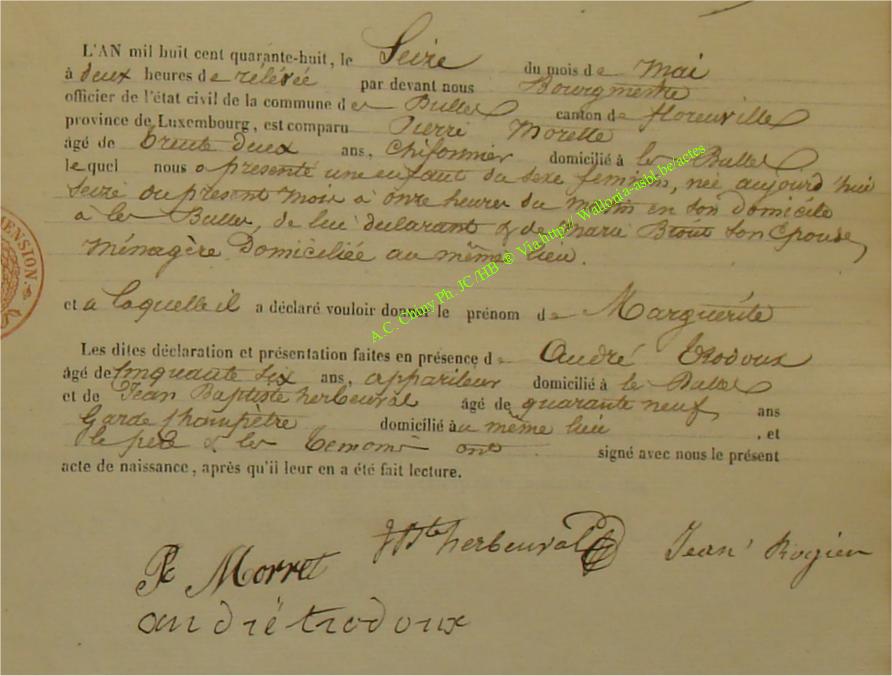 L'AN mil huit cent quarante-huit, le Seize du mois de Mai
à deux heures de rélévée par devant nous Bourgmestre
officier de l'état civil de la commune de les Bulles canton de florenville
province de Luxembourg, est comparu Pierre Morette
âgé de trente deux ans, Chifonnier domicilié à les Bulles
lequel nous a présenté une enfant du sexe feminin, née aujourd'hui
seize du présent mois à onze heures du matin en son domicile
à les Bulles, de lui déclarant & de Marie Brout son Epouse,
Ménagère Domiciliée au même lieu.
et à laquelle il a déclaré vouloir donner le prénom de Marguerite
Les dites déclaration et présentation faites en présence de André Trodoux
âgé de Cinquante six ans, appariteur domicilié à les Bulles
et de Jean Baptiste herbeuval âgé de quarante neuf ans
Garde Champètre domicilié au même lieu, et
le père & les temoins ont signé avec nous le présent
acte de naissance, après qu'il leur en a été fait lecture.
JBte herbeuval Jean Rogier
Pe Morret
andrë trodoux
MENSION.
A.C. Chiny Ph. JC /HB ® Via.http// Wallonia-asbl.be/actes